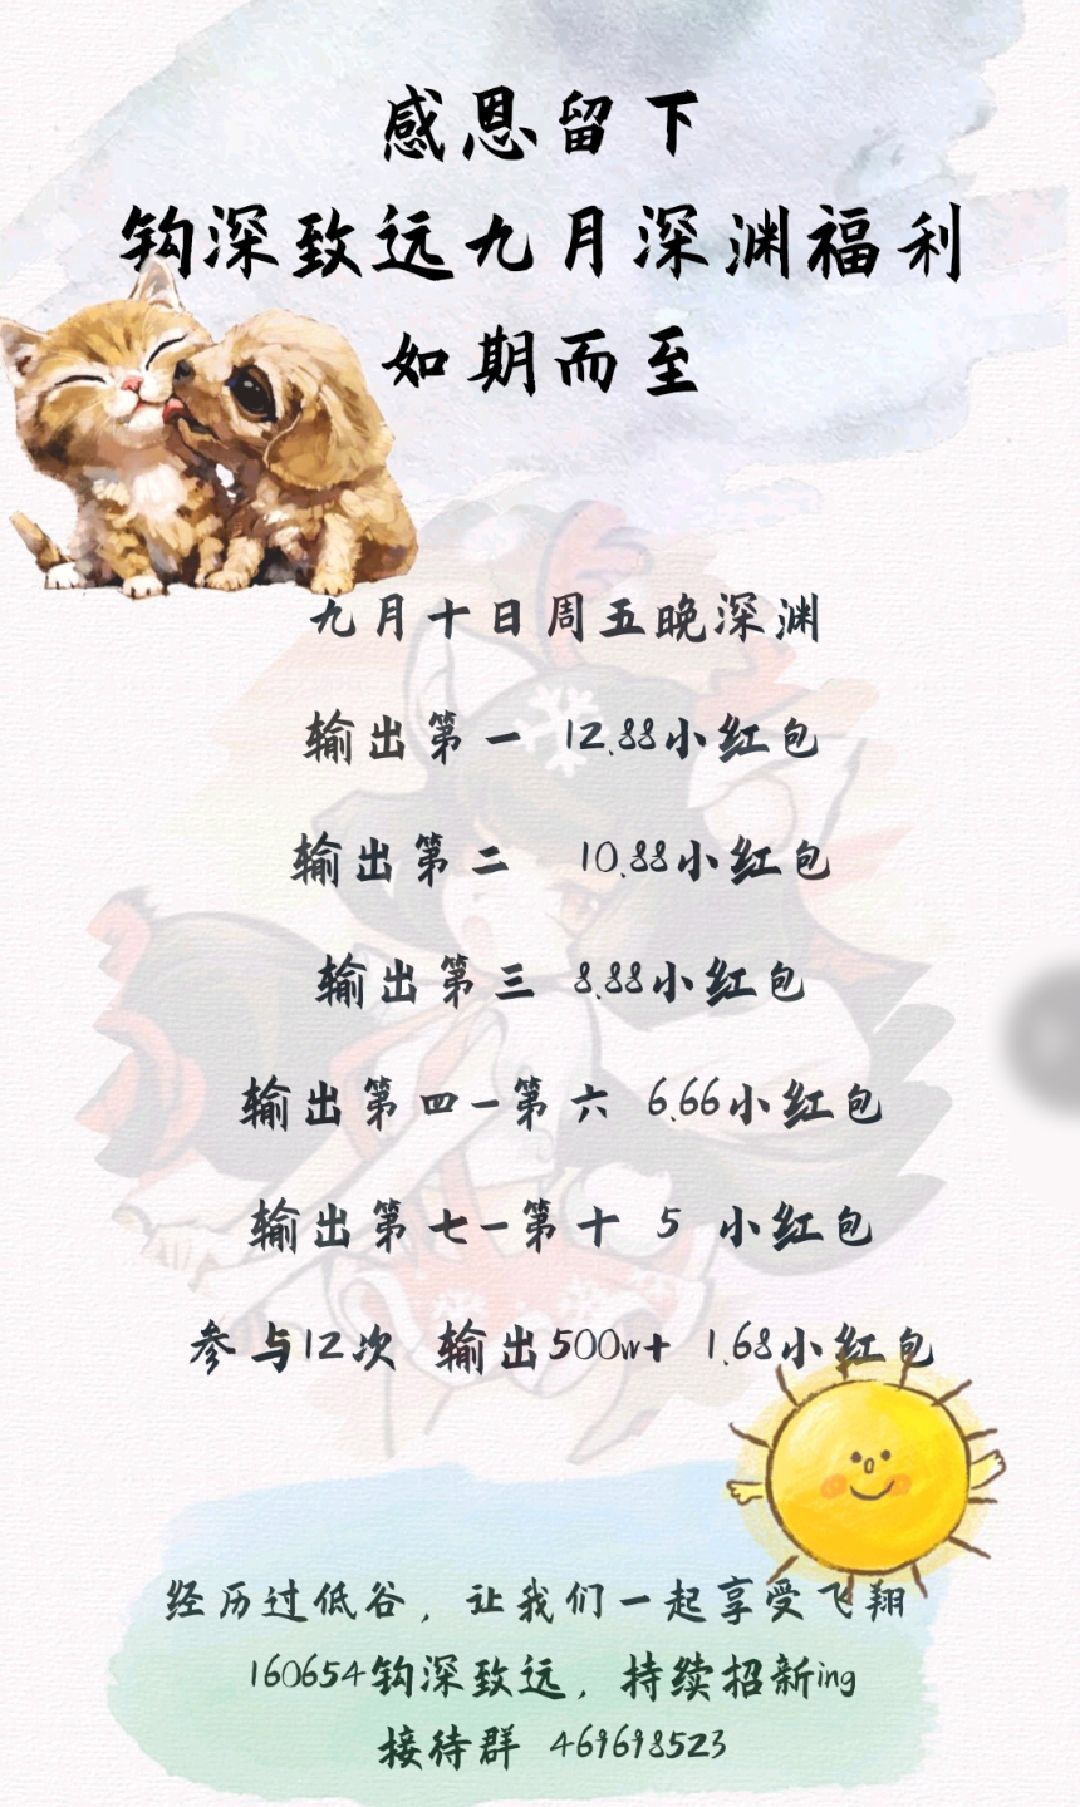 感恩留下
钩深致远九月深渊福利
如期而至
九月十日周五晚深渊
输出第一 12.88小红包
输出第二 10.88小红包
输出第三 8.88小红包
输出第四-第六 6.66小红包
输出第七-第十 5 小红包
参与12次 输出500w+ 1.68小红包
经历过低谷，让我们一起享受飞翔
160654钩深致远，持续招新ing
接待群 469698523